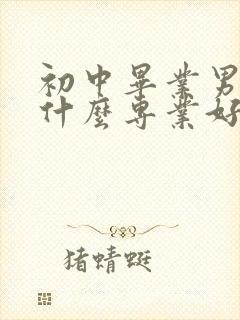 初中畢業男
什麼專業好
猪蜻蜓